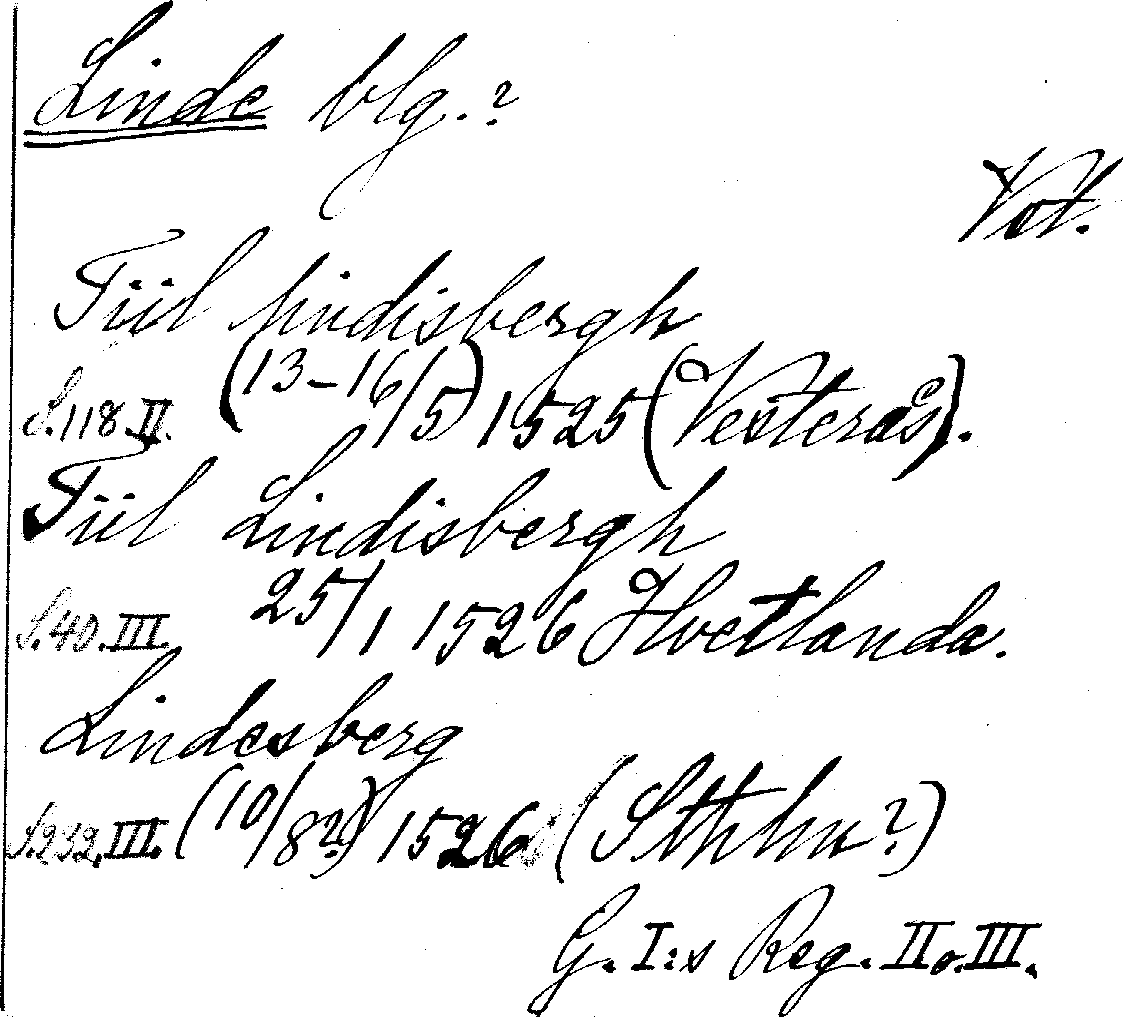 Linde blg.?
Vot.
Tiil Lindisbergh
S. 118. II. (13–16/5) 1525 (Vesterås).
Tiil Lindisbergh
S. 40. III. 25/1 1526 Hvetlanda.
Lindesberg
S. 232. III. (10/8?) 1526 (Sthlm?)
G. I:s Reg. II o. III.